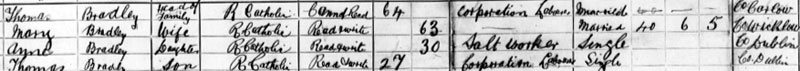 Thomas Bradley Head of Family R Catholic Cannot Read 64 Corporation Laborer Married Co Carlow
Mary Bradley Wife R Catholic Read & write 63 Married 40 6 5 Co Wicklow
Anne Bradley Daughter R Catholic Read & write 30 Salt worker Single Co Dublin
Thomas Bradley Son R Catholic Read & write 27 Corporation Laborer Single Co. Dublin